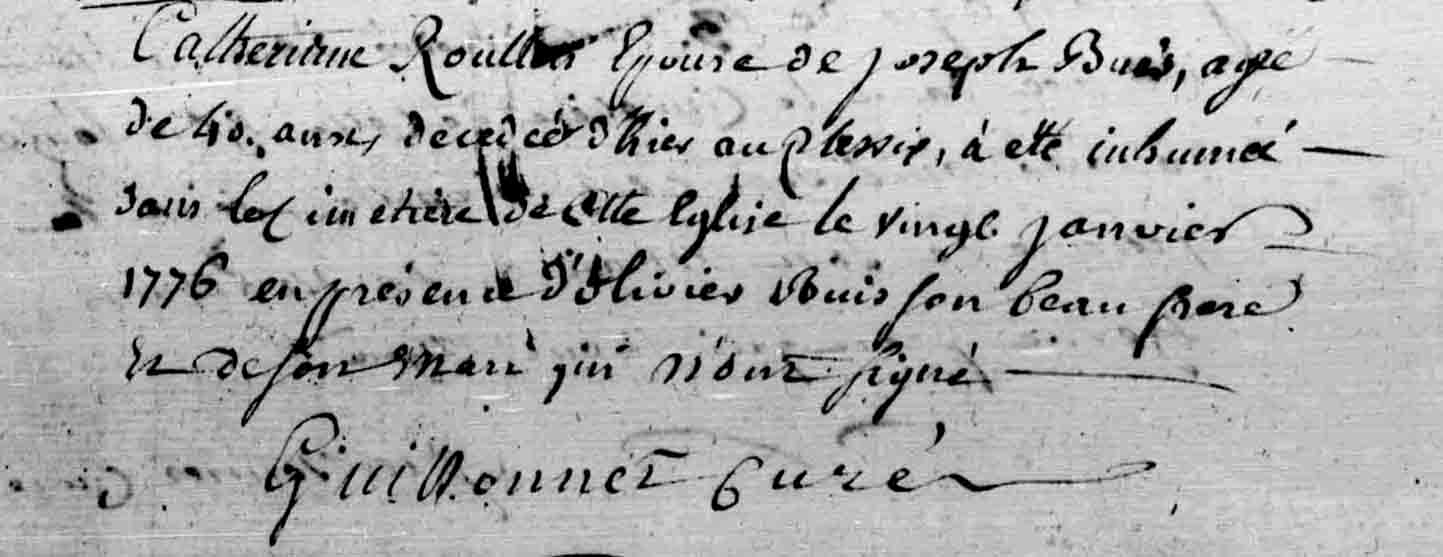 Catherinne Epouse de joseph Buis, agé
de 40. anns decedeé d'hier au plessix, à eté inhumeé
dans le Cimetiere de cette Eglise le vingt janvier
1776 en presence d'Olivier Buis son beau frere
et de son mari qui n'ont signé
Guillonnet Curé